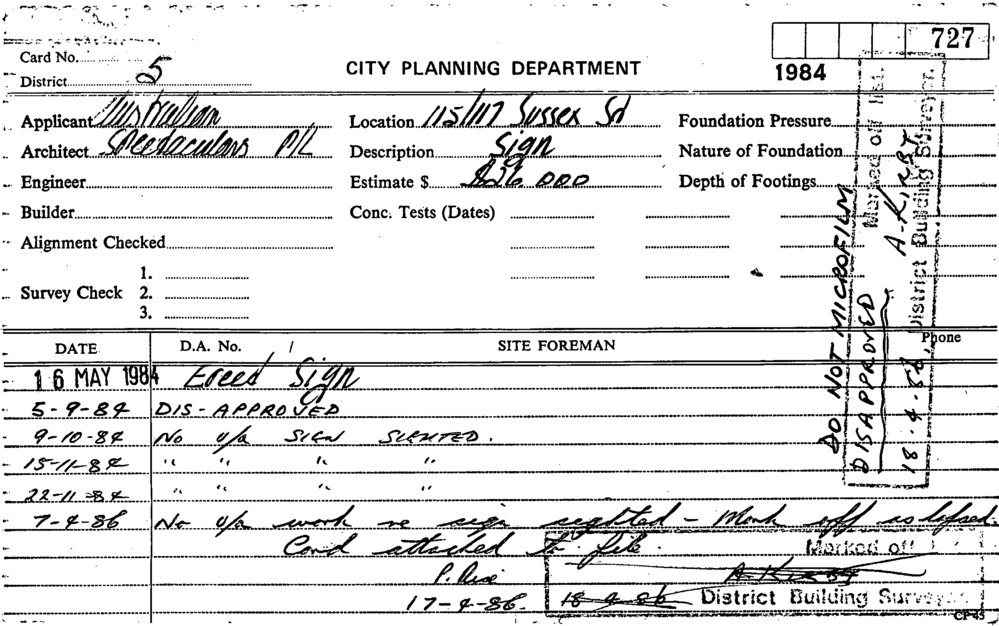 727
Card No.
CITY PLANNING DEPARTMENT
1984
District 5
Applicant Australian
Location 115/117 Sussex St
Foundation Pressure
Architect Spectaculars P/L
Description Sign
Nature of Foundation
Engineer
Estimate $ $26,000
Depth of Footings
Builder
Conc. Tests (Dates)
Alignment Checked
1.
Survey Check 2.
3.
DATE D.A. No. / SITE FOREMAN Phone
16 MAY 1984 Erect Sign
5-9-84 DIS-APPROVED
9-10-84 No u/a SIGN SIGHTED.
15-11-84 " " " "
22-11-84 " " " "
7-4-86 No u/a work re sign sighted - Mark off as lapsed.
Card attached to file.
P. Rice
17-4-86.
Marked off
A-Kirby
18-4-86 District Building Surveyor
CP45
DO NOT MICROFILM
DISAPPROVED
Marked off
A-KIRBY
18-4-86, District Building Surveyor.